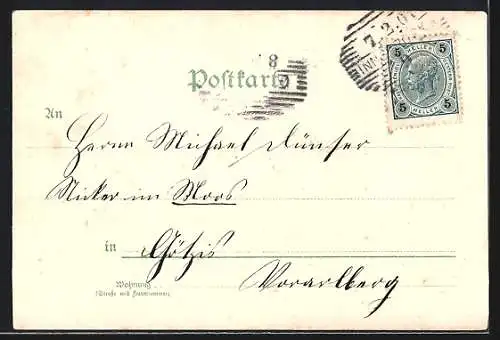 7 2 01
8
5 HELLER 5
5 HELLER 5
Postkarte
An
Herrn Michael Dünser
Sticker im Moos
in Götzis
Vorarlberg
Wohnung
(Straße und Hausnummer)